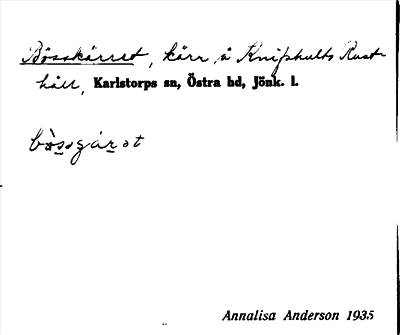 Bösskärret, kärr å Knipshults Rust-
håll, Karlstorps sn, Östra hd, Jönk. l.
bòssgárət
Annalisa Anderson 1935